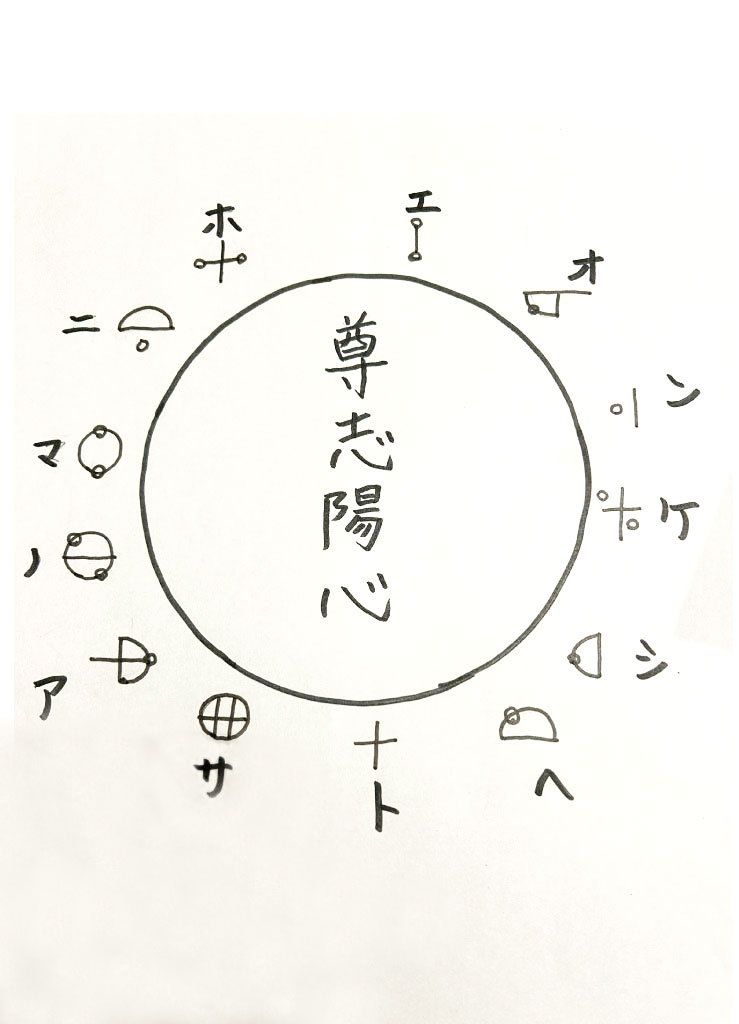 エ
オ
ン
ケ
シ
ヘ
ト
サ
ア
ノ
マ
ニ
ホ
尊志陽心